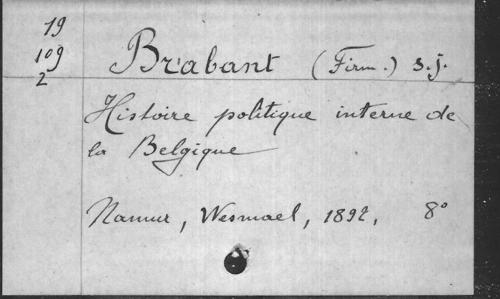 19
109
2
Brabant (Firm.) S.J.
Histoire politique interne de
la Belgique
Namur, Wesmael, 1892, 8°